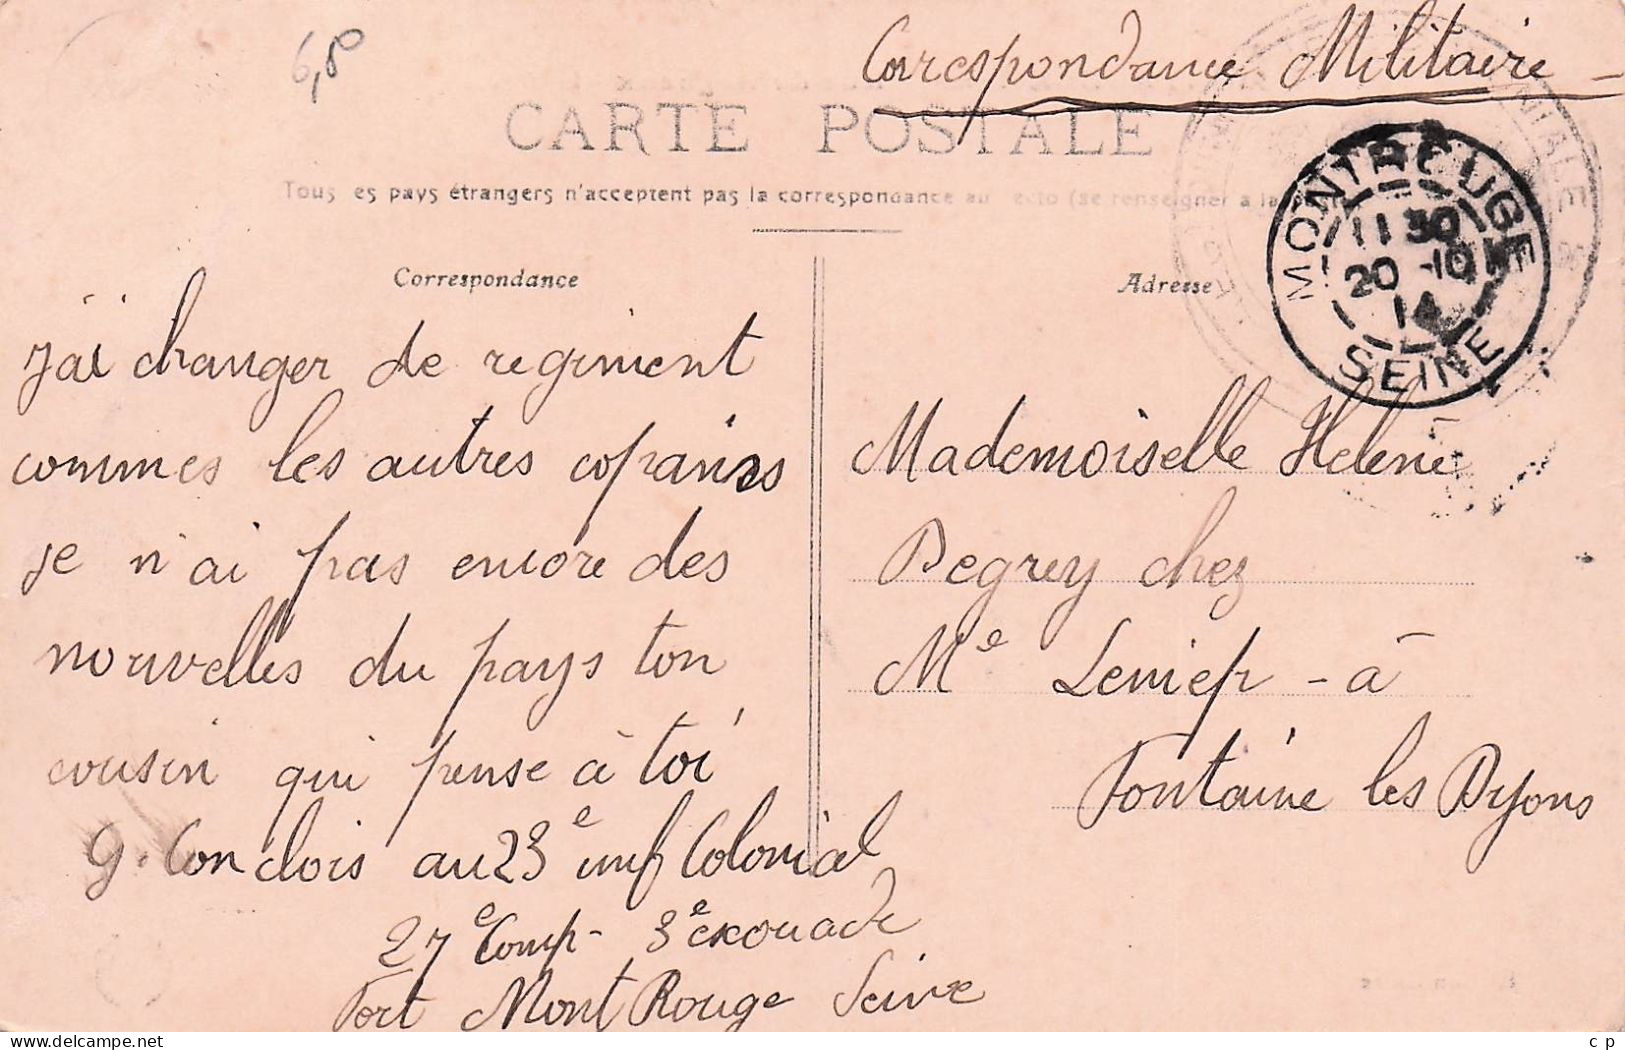 6,80
Correspondance Militaire -
CARTE POSTALE
Tous les pays étrangers n'acceptent pas la correspondance au recto (se renseigner à la
MONTROUGE
11 30
20 -10
14
SEINE
NIALE
Correspondance
Adresse
j'ai changer de regiment
commes les autres copains
je n'ai pas encore des
nouvelles du pays ton
cousin qui pense à toi
G. Conclois au 23e inf Colonial
27e Comp - 3e exouade
Fort Mont Rouge Seine
Mademoiselle Helene
Degrey chez
Me Leniept - à
Fontaine les Dijons
delcampe.net
c p